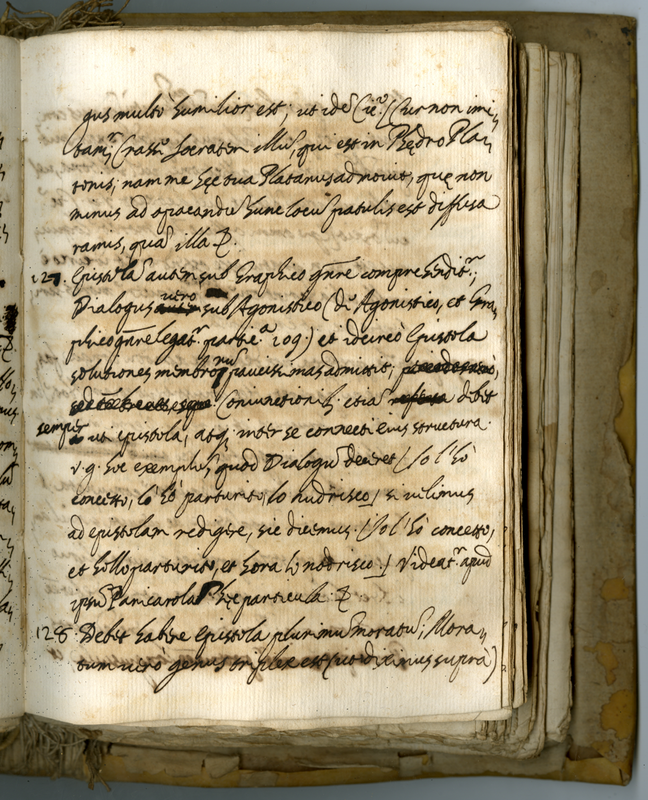 gus multò humilior est; ut idē Cicꝰ. (Cur non imi-
tamꝰ, Crasse, Socratem illū, qui est in Phędro Pla-
tonis; nam me hęc tua Platanus admonuit, quę non
minus ad opacandū hunc locū patulis est diffusa
ramis, quā illa &.
127. Epistola autem sub Graphico gn̄re comprehēditꝰ;
Dialogus vero sub Agonistico (de Agonistico, et Gra-
phico gn̄re legatꝰ parteꝰ 109.) et idcircò Epistola
solutiones membrorū paucissimas admittit;
Coniunctionib. etiā debet
semper
uti epistola, atq; inter se connecti eius structura.
v. g. hoc exemplū, quod Dialogū decet (Io l'hò
concetto, lo hò parturito, lo nudrisco) si velimus
ad epistolam redigere, sic dicemus. (Io l'hò concetto,
et hollo parturito, et hora lo nodrisco.) Videatꝰ apud
ipsū Panicarola hęc particula. &
128. Debet habere Epistola plurimū moratū; Mora-
tum verò genus triplex est (ut diximus suprà)